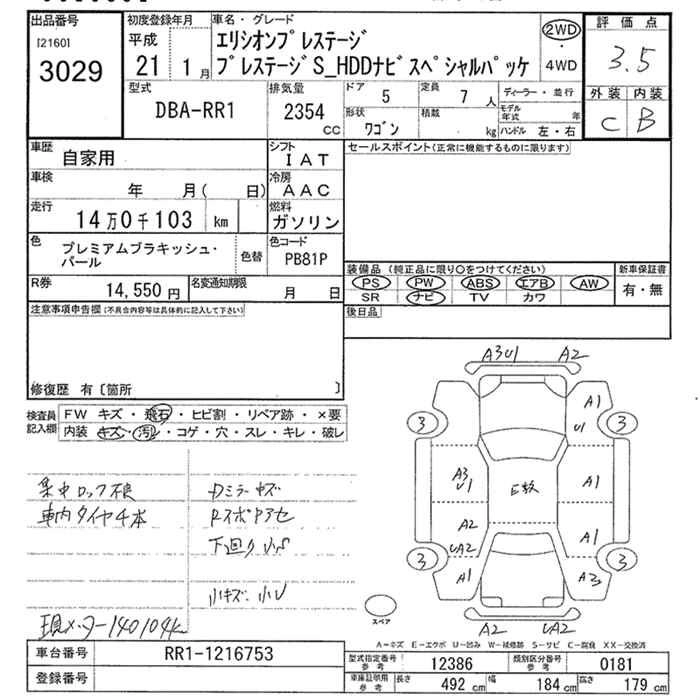 出品番号 初度登録年月 車名・グレード 評価点
[2160]
3029
平成 21年 1月
エリシオンプレステージ
プレステージS_HDDナビスペシャルパッケ
2WD ・ 4WD
3.5
型式 排気量 ドア 定員 ディーラー・並行 外装 内装
DBA-RR1 2354 CC 5 7人
形状 積載 モデル年式 年
ワゴン kg ハンドル 左・右
C B
車歴 自家用 シフト IAT
セールスポイント(正常に機能するものに限ります)
車検 年 月( 日) 冷房 AAC
走行 14万0千103 km 燃料 ガソリン
色 プレミアムブラキッシュ・パール 色替 色コード PB81P
装備品 (純正品に限り○をつけてください) 新車保証書
PS PW ABS エアB AW 有・無
SR ナビ TV カワ
R券 14,550円 名変通知期限 月 日
後日品
注意事項申告欄 (不具合内容等は具体的に記入して下さい)
修復歴 有〔箇所 〕
検査員記入欄
FW キズ・飛石・ヒビ割・リペア跡・×要
内装 キズ・汚レ・コゲ・穴・スレ・キレ・破レ
集中ロック不良 Dミラーキズ
車内タイヤ4本 RスポPアセ
下廻りサビ
小キズ. 小U
現メーター140104k
A3U1 A2
3 A1 3
U1
A3
U1
E飲 A1
A2
UA2 A1
3 A1 A3 3
スペア A2 UA2
A-キズ E-エクボ U-凹み W-補修跡 S-サビ C-腐食 XX-交換済
車台番号 RR1-1216753
登録番号
型式指定番号 参考 12386 類別区分番号 参考 0181
車庫証明用 参考 長さ 492 cm 幅 184 cm 高さ 179 cm